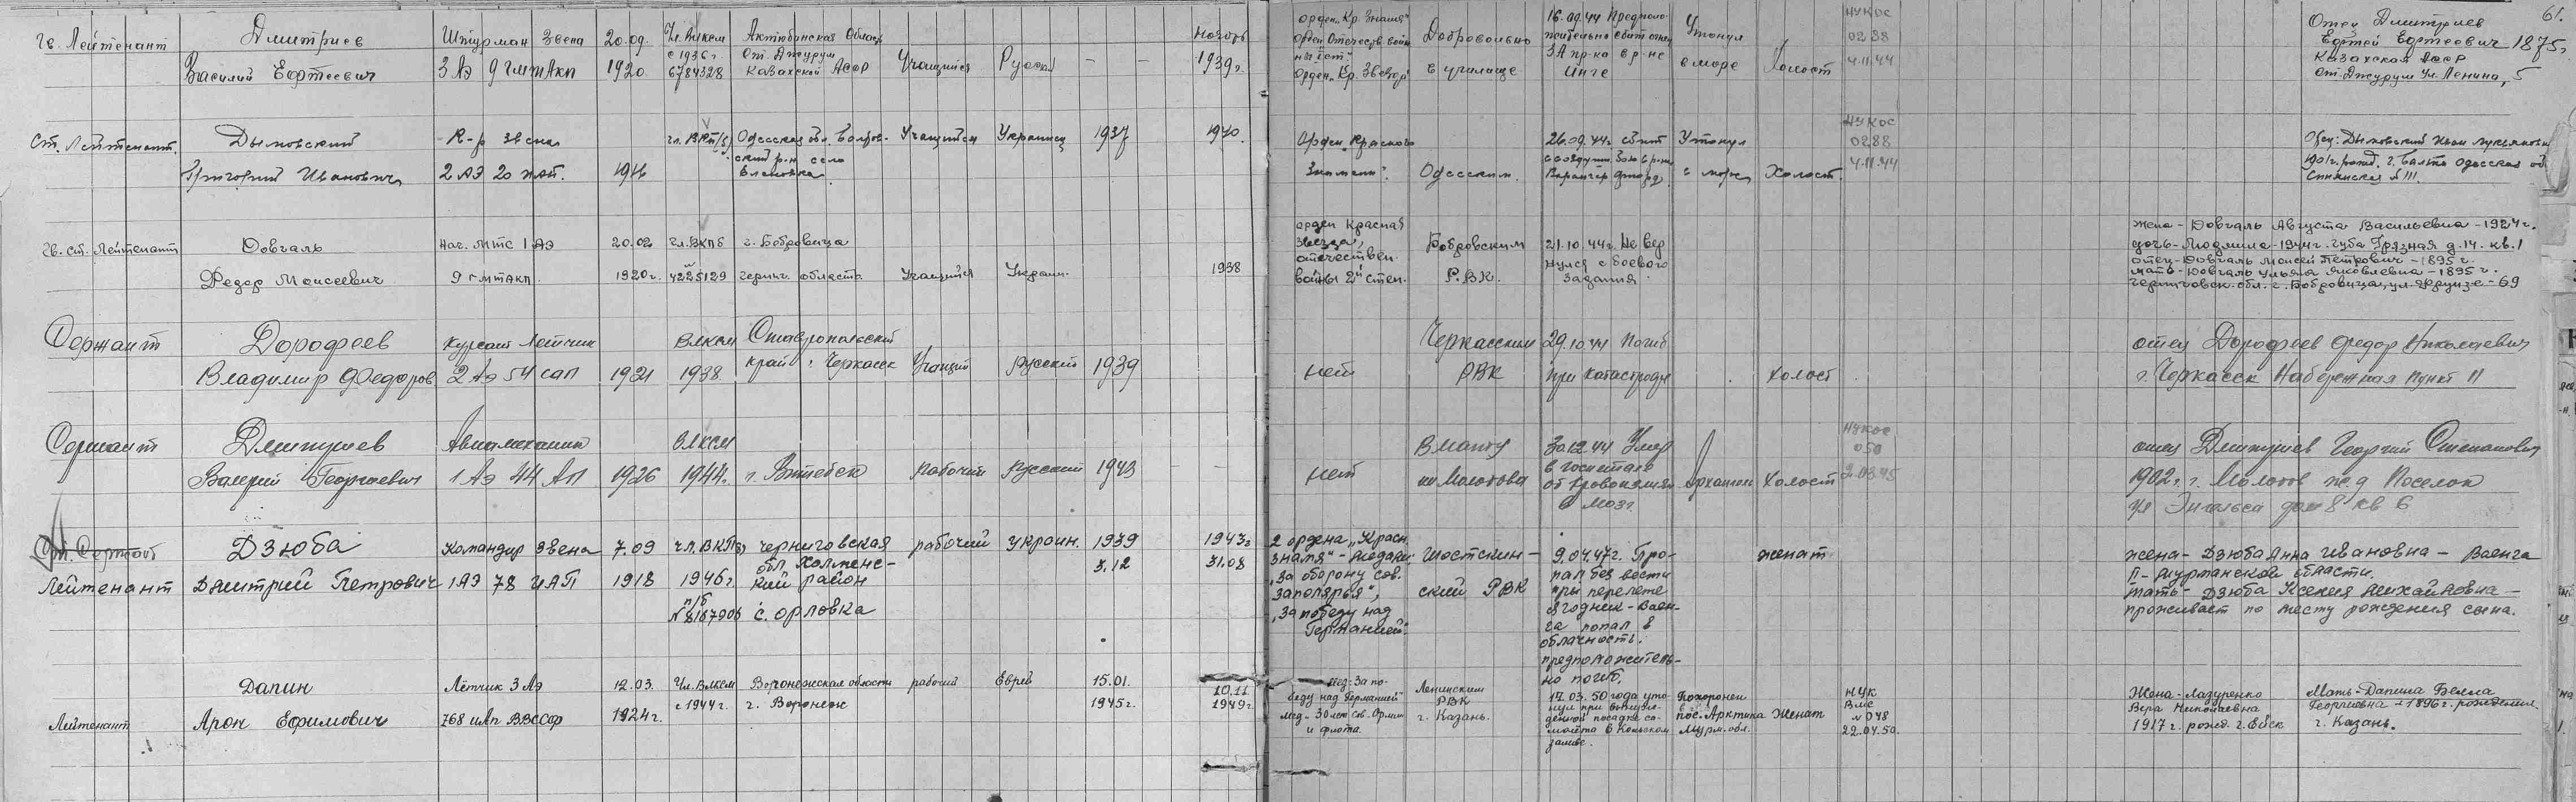 61.
Гв. Лейтенант
Дмитриев
Василий Ефтеевич
Штурман Звена
3 АЭ 9 гмтАкп
20.09.
1920
Чл. Влксм
с 1936 г
6784328
Актюбинская Область
ст. Джурун
Казахской АССР
Учащийся
Русский
— —
ноябрь
1939 г.
орден „Кр. Знамя"
орден Отечеств. войн
орден „Кр. Звезда"
Добровольно
в училище
16.09.44 Предполо-
жительно сбит огнем
ЗА пр-ка в р-не
Инге
Утонул
в море
Холост
НУКОС
0288
4.11.44
Отец Дмитриев
Ефтей Ефтеевич 1875
Казахская АССР
ст. Джурун ул. Ленина, 5
Ст. Лейтенант.
Дымовский
Григорий Иванович
К-р звена
2 АЭ 20 иап.
1916
чл. ВКП(б)
Одесская обл.
ский р-н село
Еленовка
Учащийся
Украинец
1937
1940.
Орден Красного
Знамени".
Одесским.
26.09.44 г. сбит
в воздушн. бою в р-не
Варангер фиорд
Утонул
в море
Холост.
НУКОС
0288
4.11.44
Отец: Дымовский Иван Лукьянович
1901 г. рожд. г. Балта Одесская об
Гв. ст. Лейтенант
Довгаль
Федор Моисеевич
Нач. МТС 1 АЭ
9 гмтАкп.
20.02
1920 г.
чл. ВКПб
4225129
г. Бобровица
черниг. области
Учащийся
Украин.
1938
орден Красная
Звезда,
отечествен.
войны 2й степ.
Бобровским
Р.В.К.
21.10.44 г. Не вер
нулся с боевого
задания
жена - Довгаль Августа Васильевна - 1924 г.
дочь - Людмила - 1944 г. губа Грязная д. 14. кв. 1
отец - Довгаль Моисей Петрович - 1895 г.
мать - Довгаль Ульяна Яковлевна - 1895 г.
Черниговск. обл. г. Бобровица, ул. Фрунзе - 69
Сержант
Дорофеев
Владимир Федоров
Курсант Летчик
2 Аэ 54 сап
1921
Влксм
1938
Ставропольский
край г. Черкесск
Учащий
Русский
1939
нет
Черкасским
РВК
29.10.44 Погиб
при катастрофе
холост
отец Дорофеев Федор Николаевич
г. Черкасск Набережная пункт 11
Сержант
Дмитриев
Валерий Георгиевич
Авиамеханик
1 Аэ 44 АП
1926
Влксм
1944 г.
г. Витебск
рабочий
Русский
1943
— —
нет
им Молотова
30.12.44 Умер
в госпитале
от кровоизлия
в мозг
Холост
НУКОС
050
отец Дмитриев Георгий Степанович
1902 г. г. Молотов Поселок
ул Энгельса дом 8 кв 6
Ст. Сержант
Лейтенант
Дзюба
Дмитрий Петрович
Командир Звена
1 АЭ 78 ИАП
7.09
1918
чл. ВКПб
1946 г.
п/б
№8187906
Черниговская
обл Холменс-
кий район
с. Орловка
рабочий
украин.
1939
3.12
1943 г
31.08
2 ордена „Красн.
Знамя" - медали
„За оборону сов.
заполярья",
„За победу над
Германией".
Шосткин-
ский РВК
9.04.47 г. Про-
пал без вести
при перелете
Ягодник - Ваен-
га попал в
облачность.
предположитель-
но погиб.
женат
жена - Дзюба Анна Ивановна - Ваенга
II - Мурманской области.
мать - Дзюба Ксения Михайловна -
проживает по месту рождения сына.
Лейтенант
Дапин
Арон Ефимович
Лётчик 3 Аэ
768 иАп ВВС СФ
12.03.
1924 г.
Чл. Влксм
с 1944 г.
Воронежская область
г. Воронеж
рабочий
Еврей
15.01.
1945 г.
10.11
1949 г.
Мед-За по-
беду над Германией"
мед - 30 лет Сов. Армии
и флота.
Ленинским
РВК
г. Казань.
17.03.50 года уто-
нул при вынуж-
денной посадке са-
молёта в Кольском
заливе.
Похоронен
пос. Арктика
Мурм. обл.
Женат
НУК
ВМС
№ 048
22.04.50.
Жена - Лазуренко
Вера Николаевна
1917 г. рожд. г. Ейск
Мать - Дапина Белла
Георгиевна - 1896 г. рождения
г. Казань.